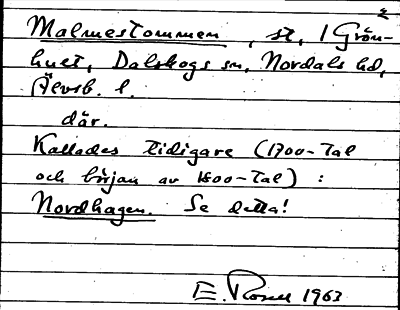 Malmestommen, st, i Grön-
huet, Dalskogs sn, Nordals hd,
Älvsb. l.
där.
Kallades tidigare (1700-tal
och början av 1800-tal) :
Nordhagen. Se detta!
E. Rosell 1963